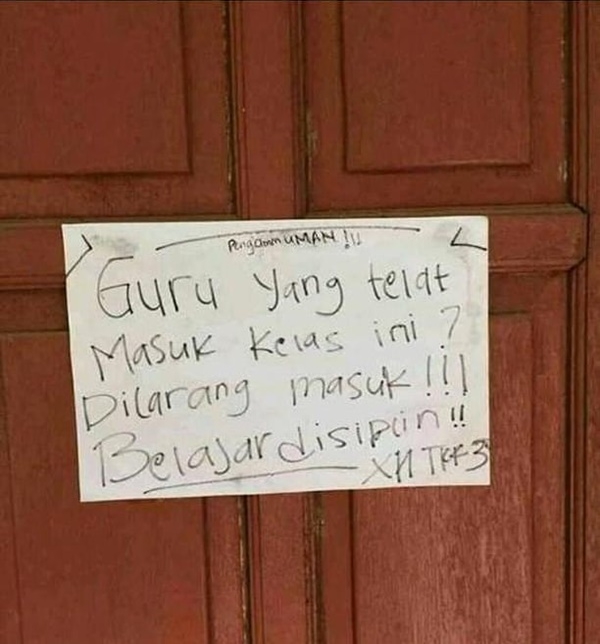 PengammUMAN !!!
Guru Yang telat
Masuk Kelas ini ?
Dilarang masuk !!!
Belajar disiplin !!
XII TKR 3